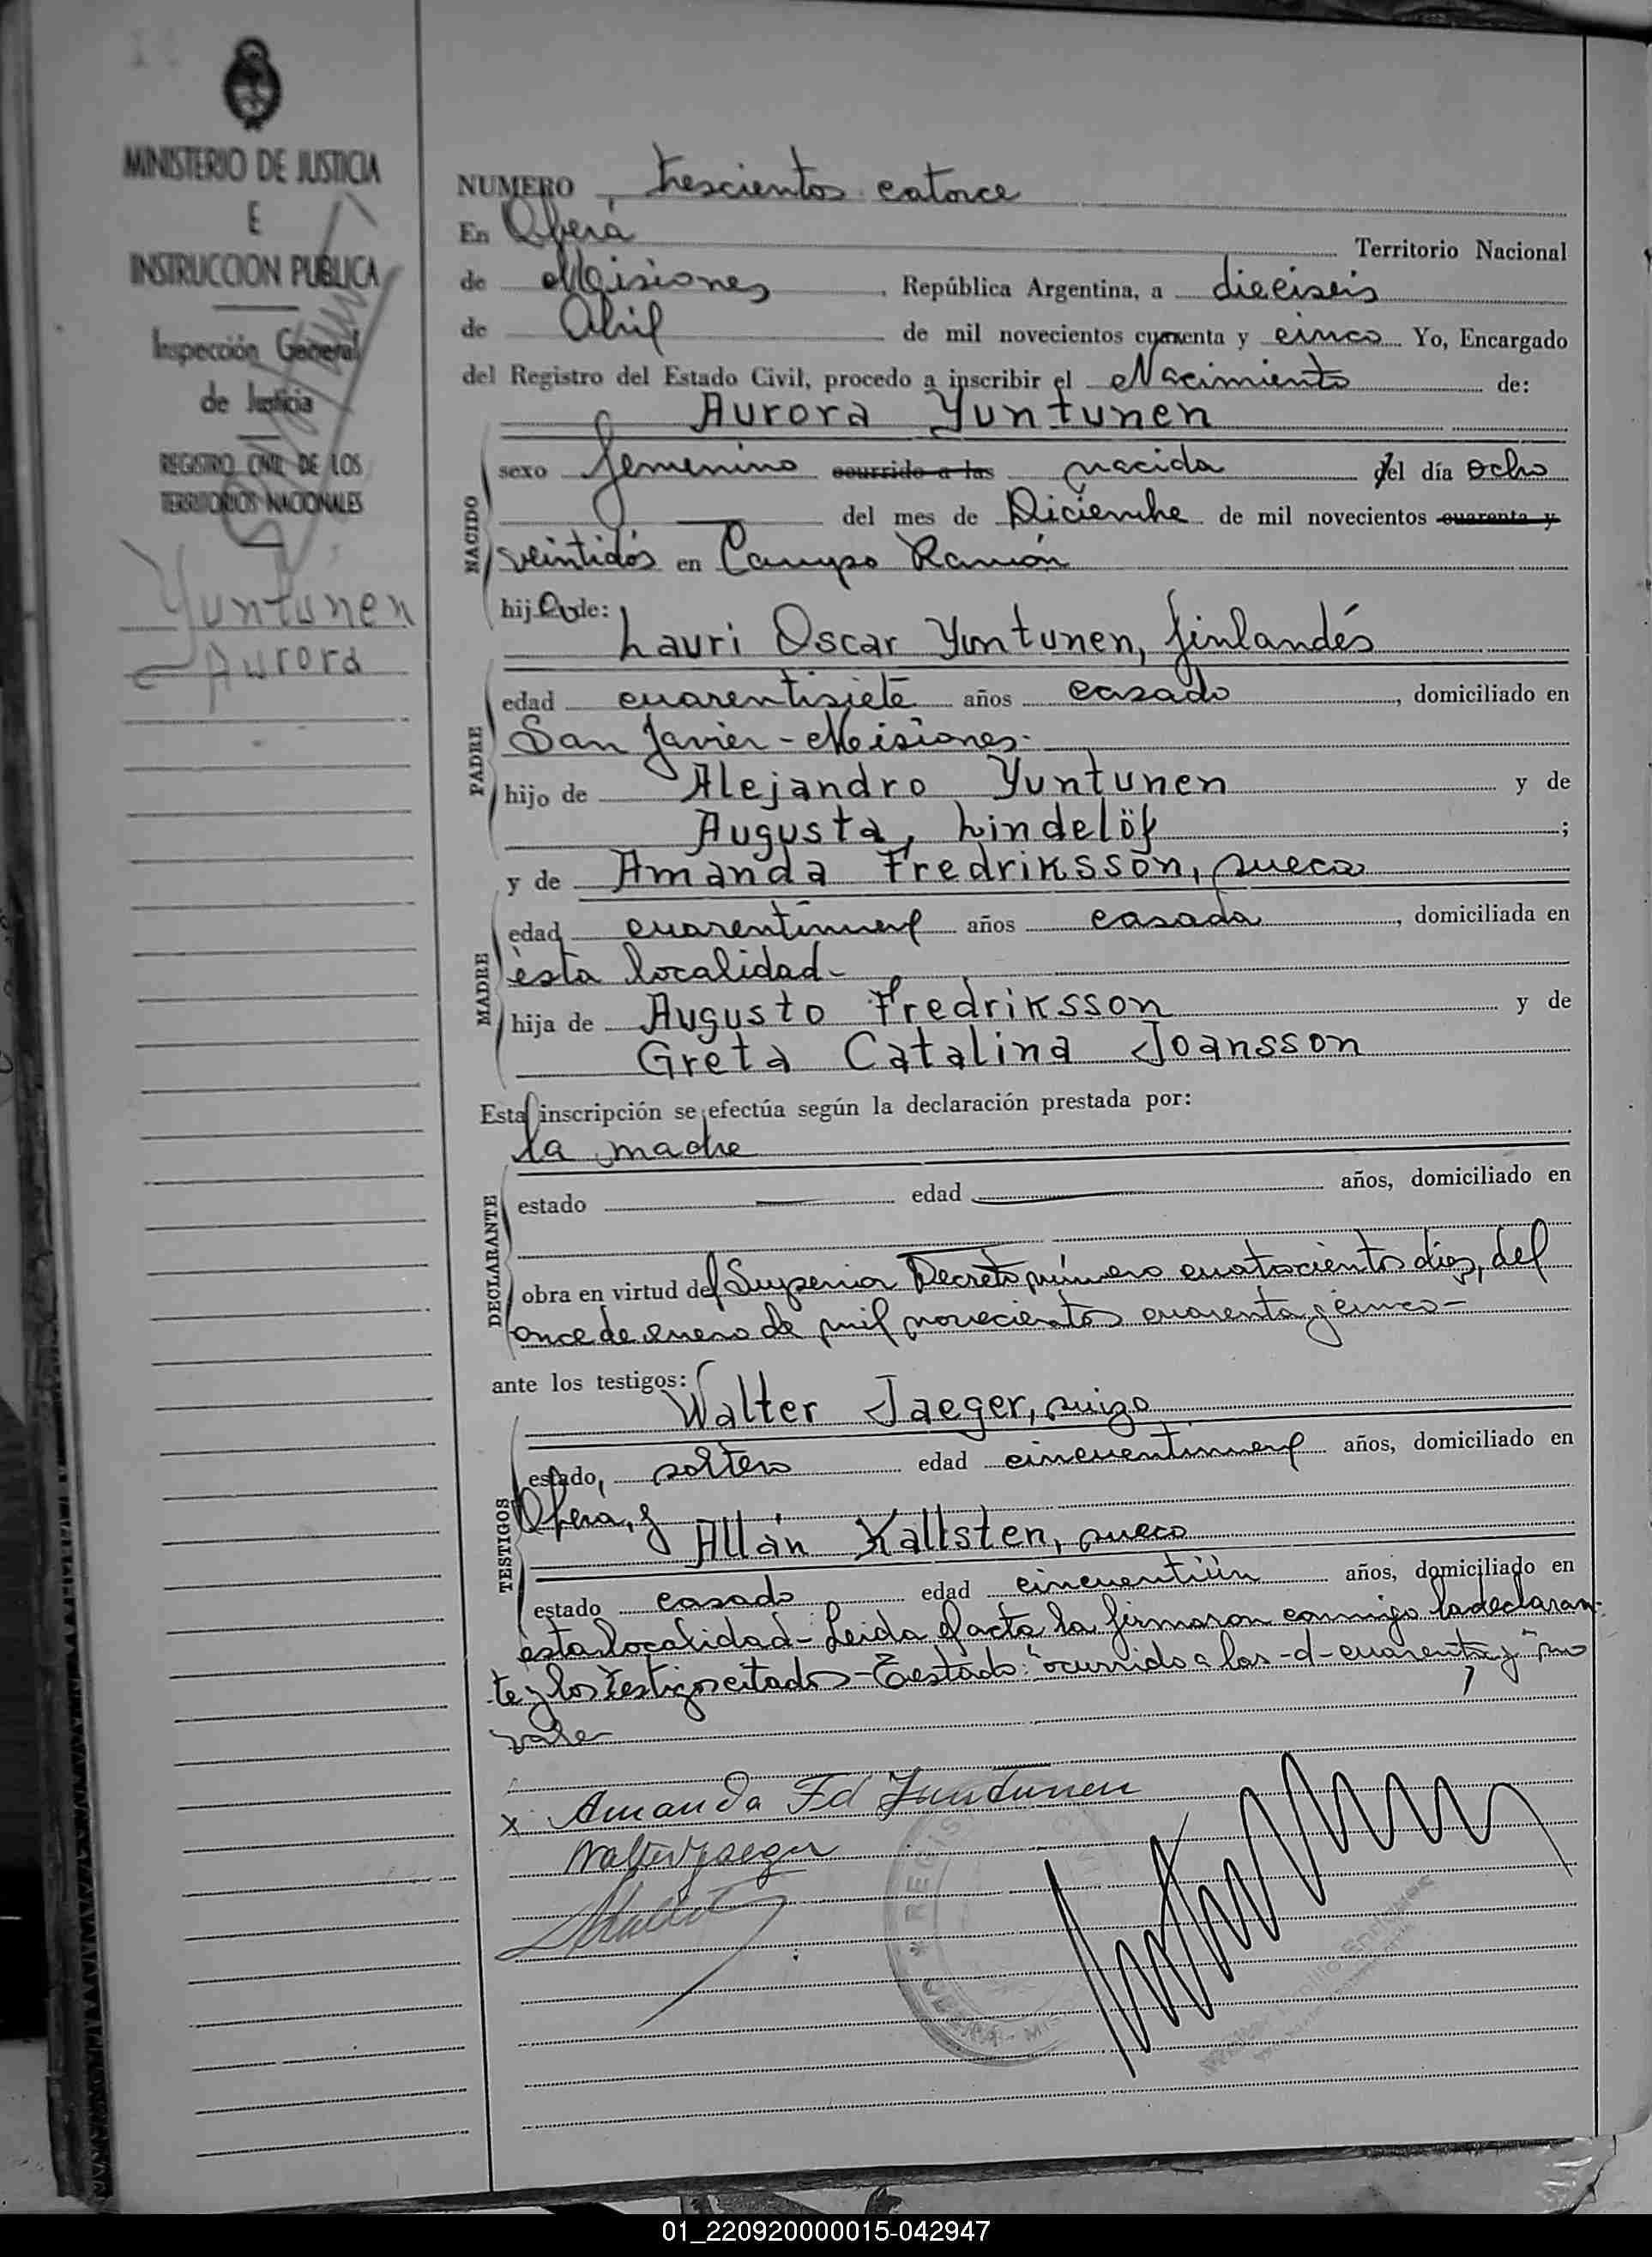 MINISTERIO DE JUSTICIA
E
INSTRUCCION PUBLICA
Inspección General
de Justicia
REGISTRO CIVIL DE LOS
TERRITORIOS NACIONALES
Yuntunen
Aurora
NUMERO trescientos catorce
En Oberá Territorio Nacional
de Misiones, República Argentina, a dieciseis
de Abril de mil novecientos cuarenta y cinco Yo, Encargado
del Registro del Estado Civil, procedo a inscribir el Nacimiento de:
Aurora Yuntunen
NACIDO
sexo femenino ocurrido a las nacida el día ocho
del mes de Diciembre de mil novecientos cuarenta y
veintidós en Campo Ramón
hija de:
Lauri Oscar Yuntunen, finlandés
PADRE
edad cuarentisiete años casado, domiciliado en
San Javier - Misiones.
hijo de Alejandro Yuntunen y de
Augusta, Lindelöf;
y de Amanda Fredriksson, sueca
MADRE
edad cuarentinueve años casada, domiciliada en
ésta localidad-
hija de Augusto Fredriksson y de
Greta Catalina Joansson
Esta inscripción se efectúa según la declaración prestada por:
la madre
DECLARANTE
estado edad años, domiciliado en
obra en virtud del Superior Decreto número cuatrocientos diez, del
once de enero de mil novecientos cuarenta y cinco-
ante los testigos:
Walter Jaeger, suizo
TESTIGOS
estado, soltero edad cincuentinueve años, domiciliado en
Obera, y
Allán Kallsten, sueco
estado casado edad cincuentiún años, domiciliado en
ésta localidad- Leida el acta la firmaron conmigo la declaran-
te y los testigos citados- Testado: "ocurrido a las -d- cuarenta y" no
vale-
x Amanda Fd Juntunen
Walter Jaeger
REGIS
01_220920000015-042947